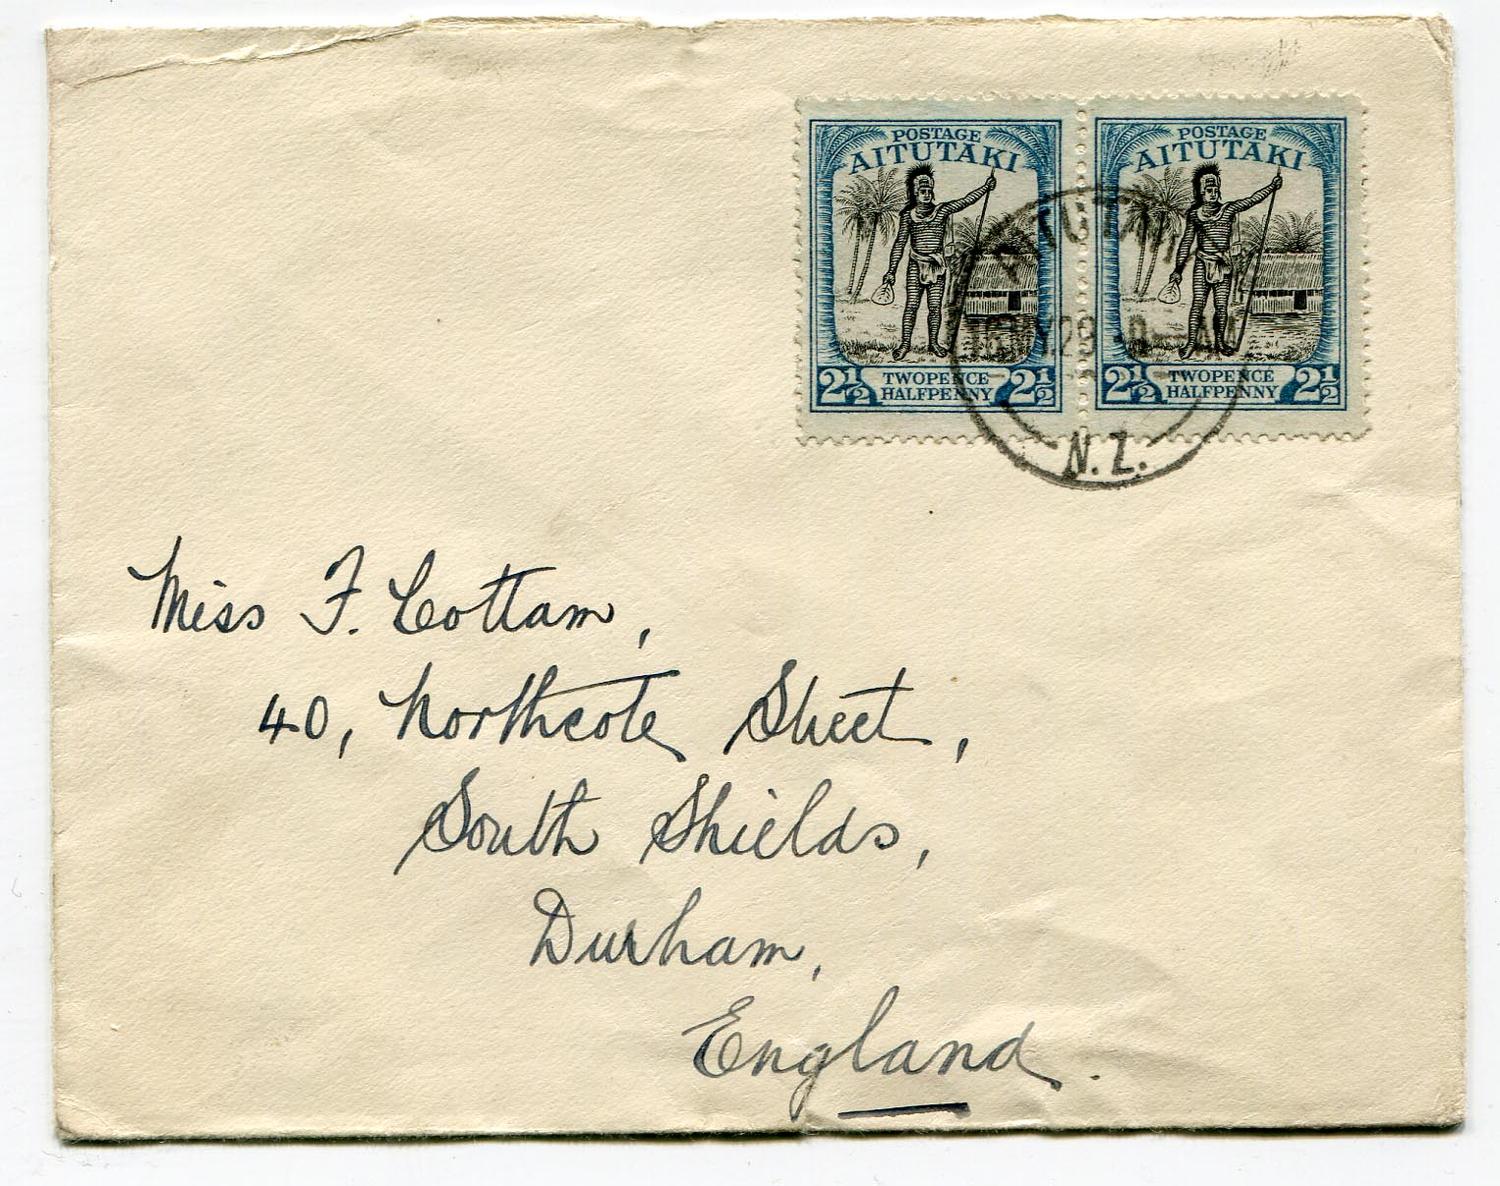 POSTAGE
AITUTAKI
2½ TWOPENCE HALFPENNY 2½
POSTAGE
AITUTAKI
2½ TWOPENCE HALFPENNY 2½
AITUTAKI
N.Z.
Miss F. Cottam,
40, Northcote Street,
South Shields,
Durham,
England.